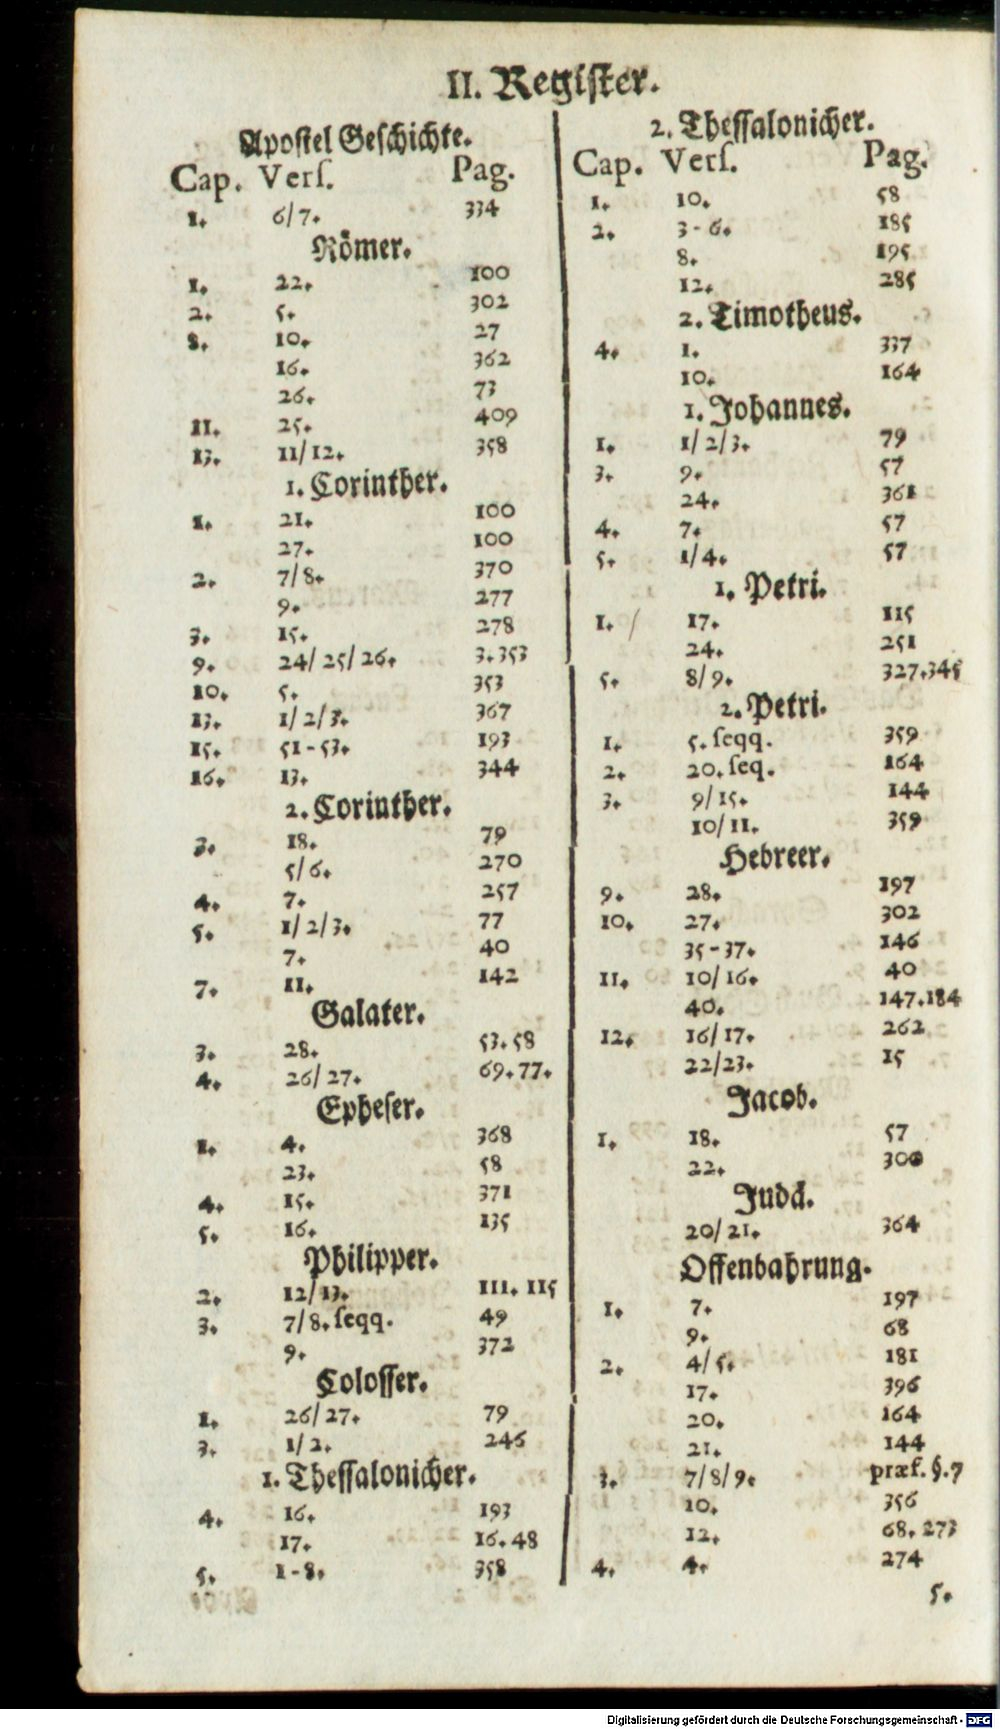 II. Regiſter.
Apoſtel Geſchichte.
Cap. Verſ. Pag.
1. 6/7. 334
Römer.
1. 22. 100
2. 5. 302
8. 10. 27
16. 362
26. 73
11. 25. 409
13. 11/12. 358
1. Corinther.
1. 21. 100
27. 100
2. 7/8. 370
9. 277
3. 15. 278
9. 24/25/26. 3.353
10. 5. 353
13. 1/2/3. 367
15. 51-53. 193
16. 13. 344
2. Corinther.
3. 18. 79
5/6. 270
4. 7. 257
5. 1/2/3. 77
7. 40
7. 11. 142
Galater.
3. 28. 53.58
4. 26/27. 69.77.
Epheſer.
1. 4. 368
23. 58
4. 15. 371
5. 16. 135
Philipper.
2. 12/13. 111. 115
3. 7/8. ſeqq. 49
9. 372
Coloſſer.
1. 26/27. 79
3. 1/2. 246
1. Theſſalonicher.
4. 16. 193
17. 16.48
5. 1-8. 358
2. Theſſalonicher.
Cap. Verſ. Pag.
1. 10. 58
2. 3-6. 185
8. 195
12. 285
2. Timotheus.
4. 1. 337
10. 164
1. Johannes.
1. 1/2/3. 79
3. 9. 57
24. 361
4. 7. 57
5. 1/4. 57
1. Petri.
1. 17. 115
24. 251
5. 8/9. 327.345
2. Petri.
1. 5. ſeqq. 359
2. 20. ſeq. 164
3. 9/15. 144
10/11. 359
Hebreer.
9. 28. 197
10. 27. 302
35-37. 146
11. 10/16. 40
40. 147.184
12. 16/17. 262
22/23. 15
Jacob.
1. 18. 57
22. 300
Judä.
20/21. 364
Offenbahrung.
1. 7. 197
9. 68
2. 4/5. 181
17. 396
20. 164
21. 144
3. 7/8/9. præf. §.7
10. 356
12. 68. 273
4. 4. 274
5.
Digitalisierung gefördert durch die Deutsche Forschungsgemeinschaft - DFG